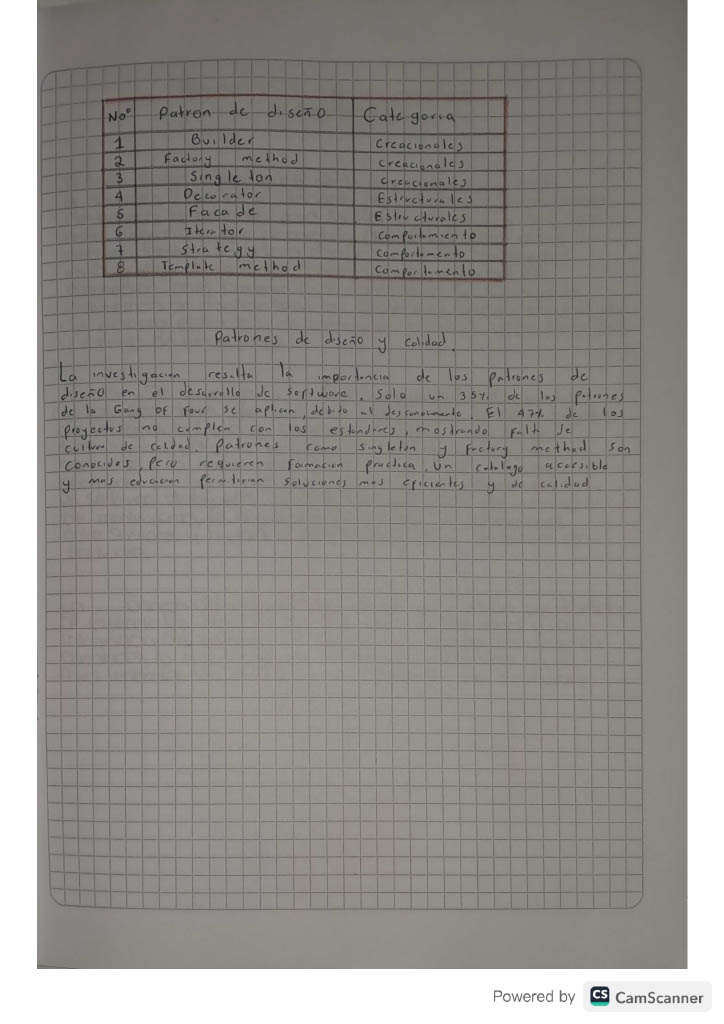 No° Patron de diseño Categoria
1 Builder Creacionales
2 Factory method Creacionales
3 Singleton Creacionales
4 Decorator Estructurales
5 Facade Estructurales
6 Iterator Comportamiento
7 Strategy Comportamento
8 Template method Comportamento
Patrones de diseño y calidad.
La investigacion resalta la importancia de los patrones de
diseño en el desarrollo de software. Solo un 35% de los patrones
de la Gang of Four se aplican, debido al desconocimento. El 47% de los
proyectos no complen con los estandares, mostrando falt de
cultura de calidad. Patrones como singleton y factory method son
conocidos, pero requieren formacion practica. Un catalogo accesible
y mas educacion permitirian soluciones mas eficientes y de calidad
Powered by CS CamScanner